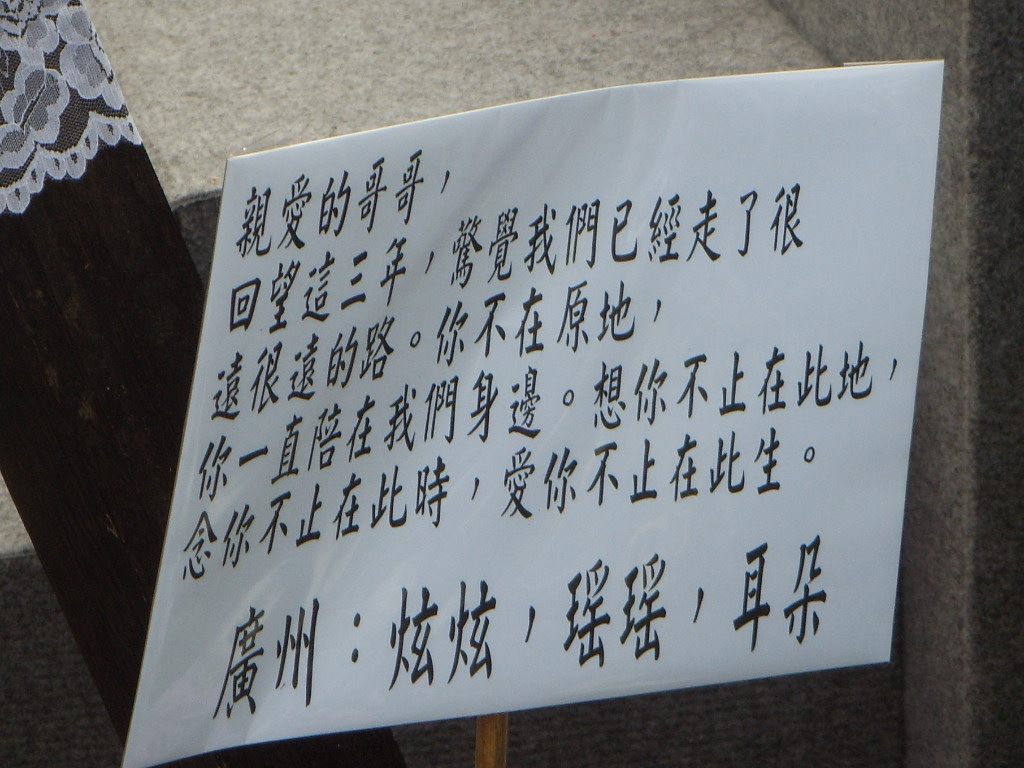 親愛的哥哥，
回望這三年，驚覺我們已經走了很
遠很遠的路。你不在原地，
你一直陪在我們身邊。想你不止在此地，
念你不止在此時，愛你不止在此生。
廣州：炫炫，瑶瑶，耳朵